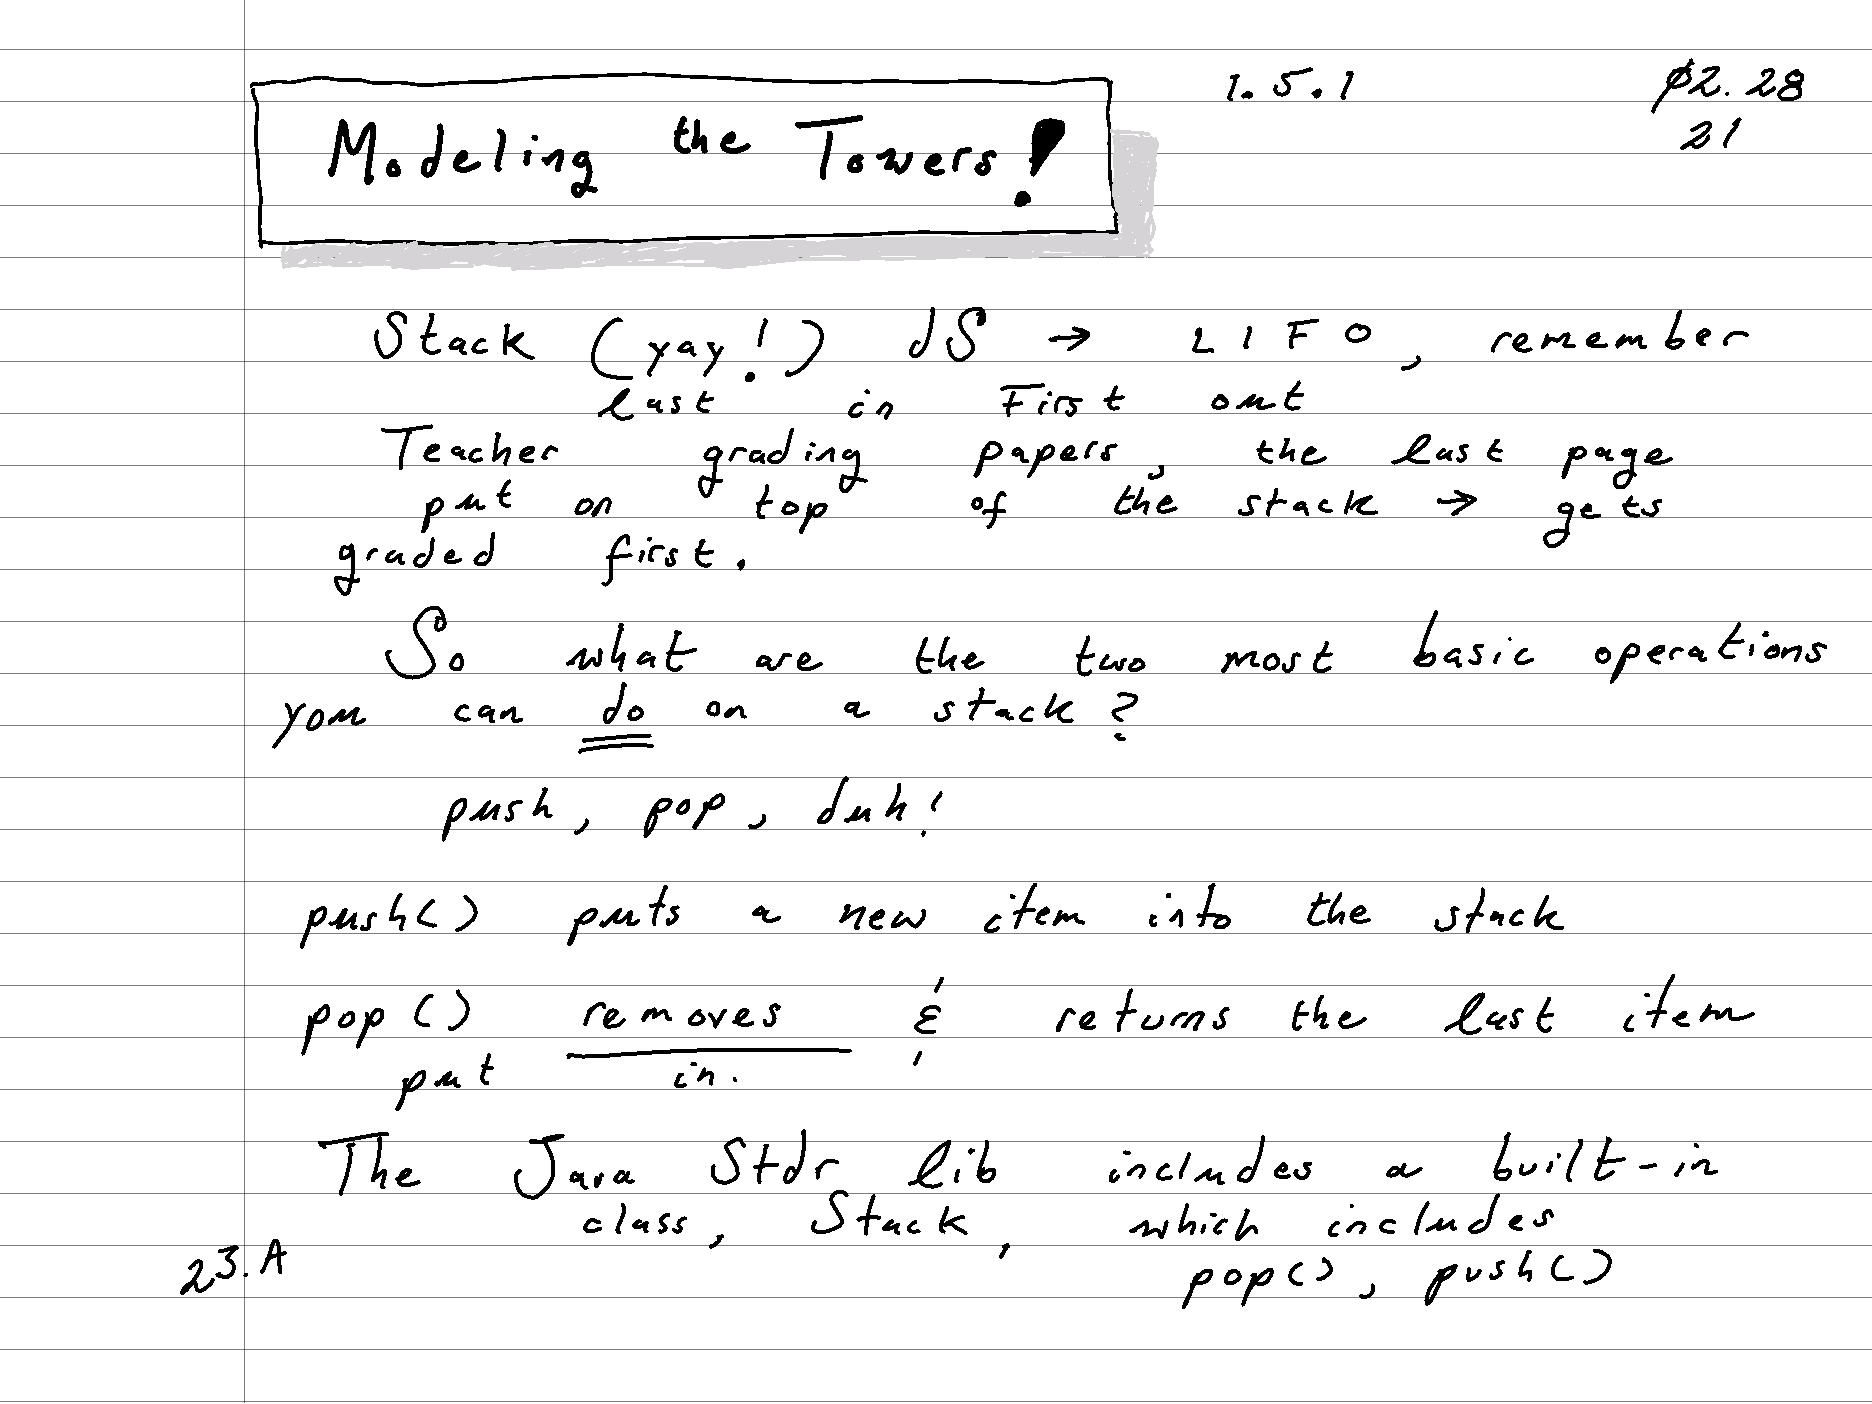 Modeling the Towers! 1.5.1 02.28
21
Stack (yay!) dS → LIFO, remember
last in First out
Teacher grading papers, the last page
put on top of the stack → gets
graded first.
So what are the two most basic operations
you can do on a stack?
push, pop, duh!
push() puts a new item into the stack
pop() removes & returns the last item
put in.
The Java Stdr lib includes a built-in
class, Stack, which includes
23.A
pop(), push()